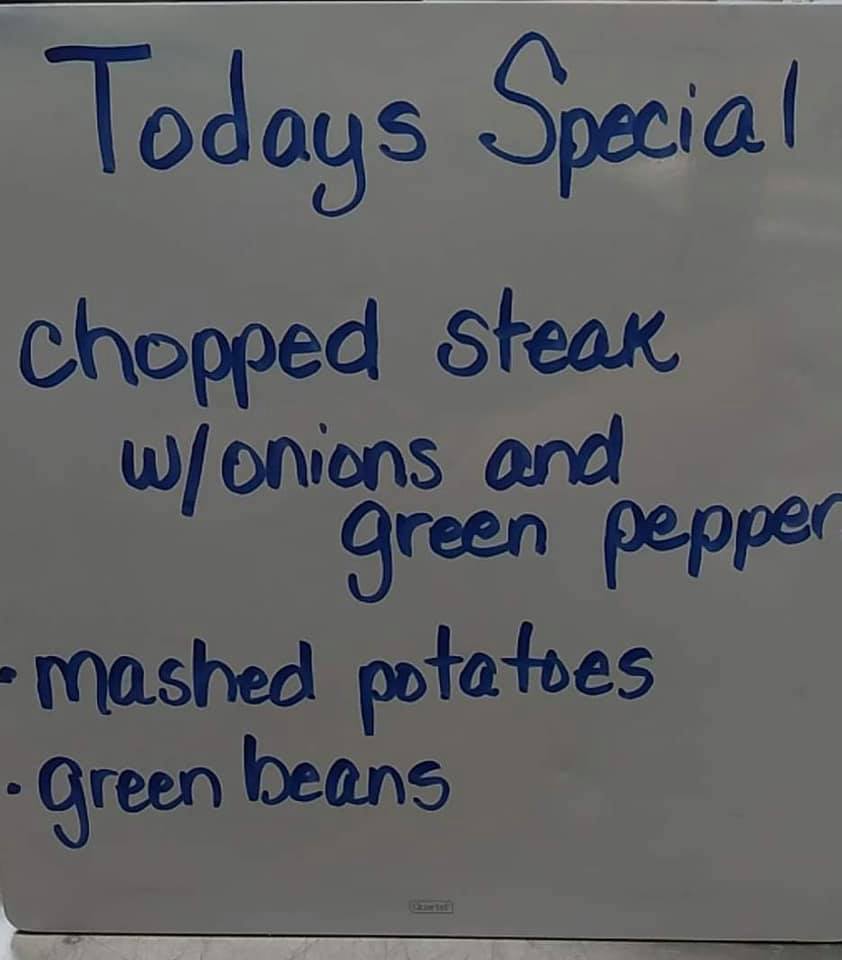 Todays Special
chopped steak
w/onions and
green pepper
· mashed potatoes
· green beans
Quartet